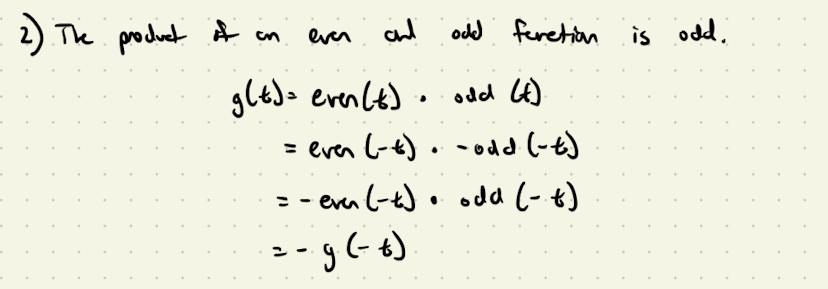 2) The product of an even and odd function is odd.
g(t) = even(t) · odd(t)
= even(-t) · -odd(-t)
= -even(-t) · odd(-t)
= -g(-t)